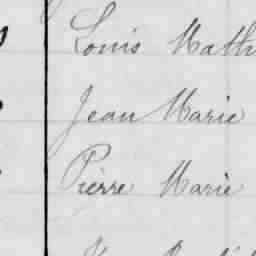 Louis Math
Jean Marie
Pierre Marie